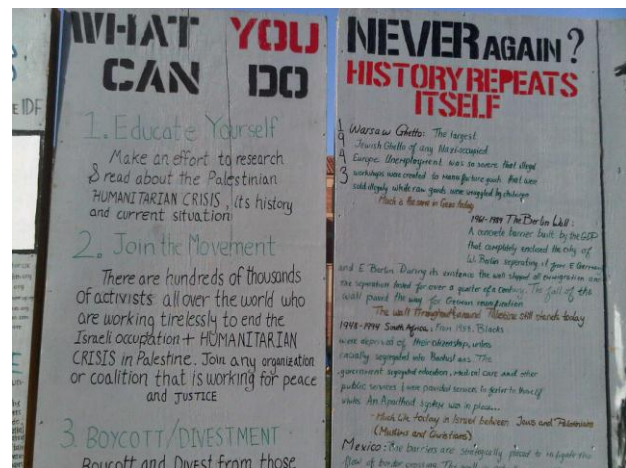 E IDF
WHAT YOU
CAN DO
1. Educate Yourself
Make an effort to research
& read about the Palestinian
HUMANITARIAN CRISIS, its history
and current situation
2. Join the Movement
There are hundreds of thousands
of activists all over the world who
are working tirelessly to end the
Israeli occupation + HUMANITARIAN
CRISIS in Palestine. Join any organization
or coalition that is working for peace
and JUSTICE
3. BOYCOTT/DIVESTMENT
Boycott and Divest from those
NEVER AGAIN?
HISTORY REPEATS
ITSELF
1943 Warsaw Ghetto: The largest
Jewish Ghetto of any Nazi-occupied
Europe. Unemployment was so severe that illegal
workshops were created to manufacture goods that were
sold illegally while raw goods were smuggled by children
Much is the same in Gaza today
1961-1989 The Berlin Wall:
A concrete barrier built by the GDR
that completely enclosed the city of
W. Berlin seperating it from E. Germany
and E Berlin. During its existence the wall stopped all emigration and
the seperation lasted for over a quarter of a century. The fall of the
wall paved the way for German reunification
The wall throughout/around Palestine still stands today
1948-1994 South Africa: From 1958, Blacks
were deprived of their citizenship,
racially segregated into Bantustans. The
government segregated education, medical care and other
public services & provided services inferior to those of
whites. An Apartheid system was in place...
- Much like today in Israel between Jews and Palestinians
(Muslims and Christians)
Mexico: The barriers are strategically placed to mitigate the
flow of border crossing